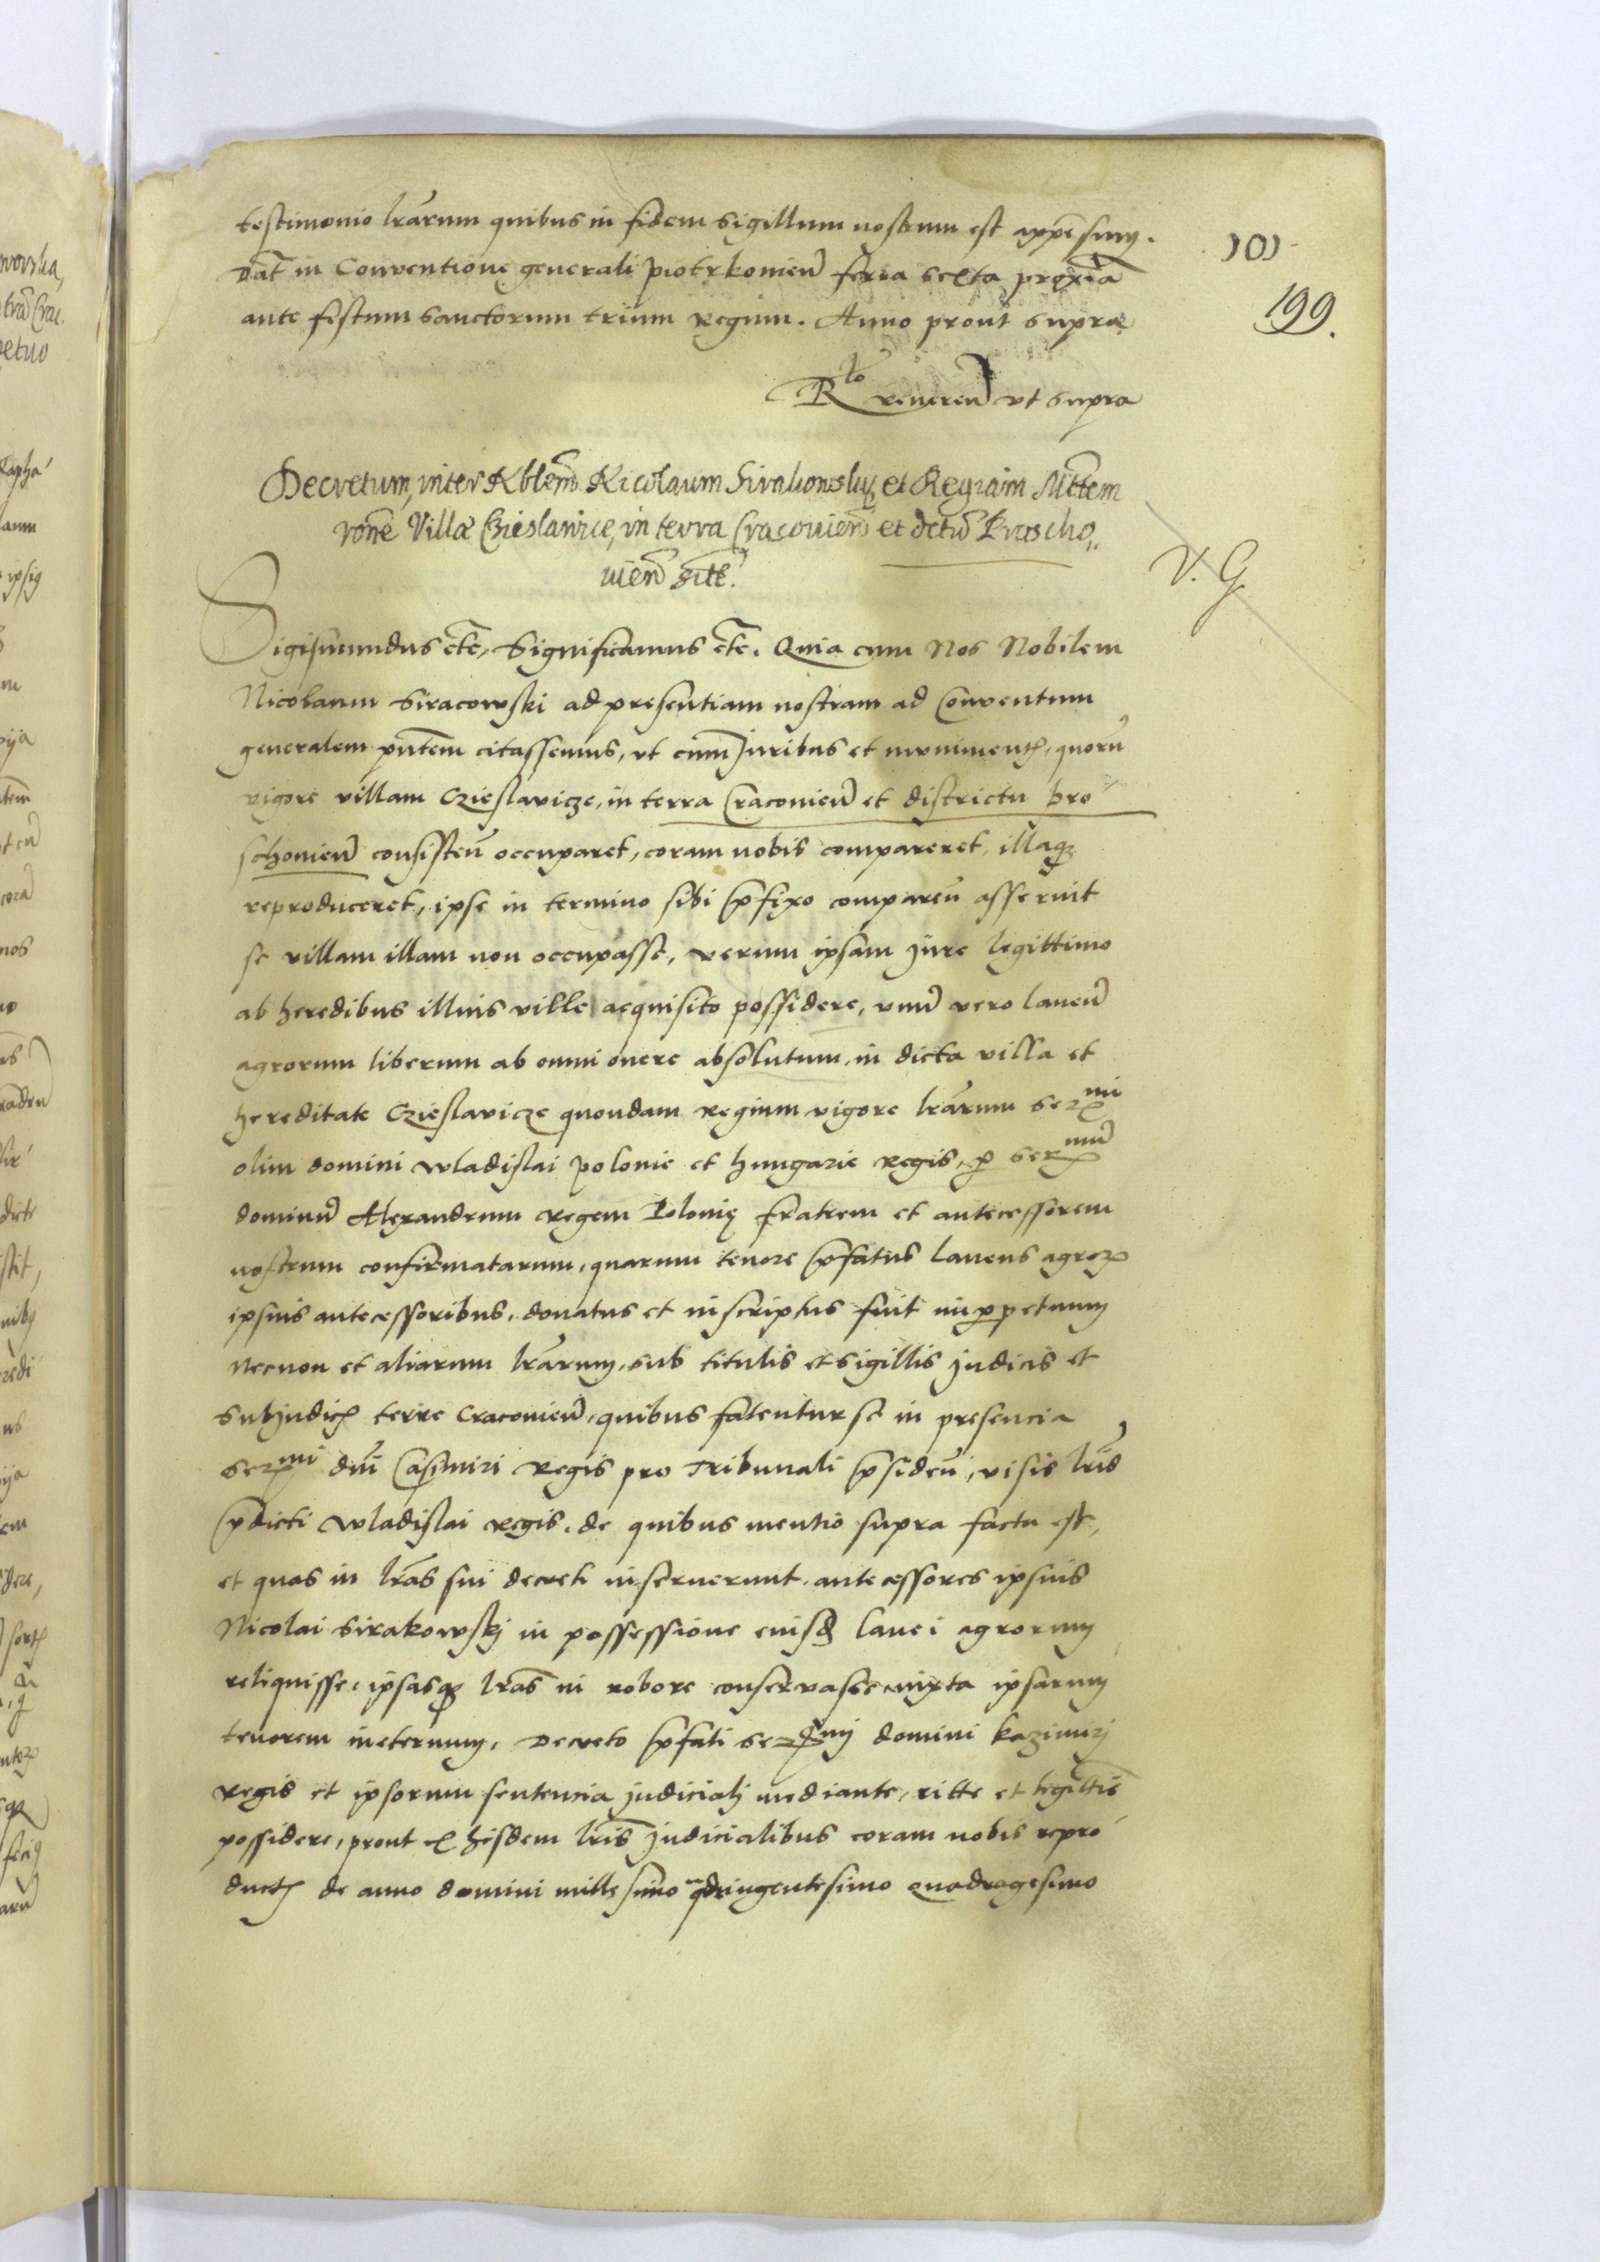 testimonio lrarum quibus in fidem sigillum nostrum est appensum.
Dat in Conventione generali piotrkonien feria sexta proxia
ante festum sanctorum trium Regum. Anno prout supra
101
199.
Rlo reveren vt supra
Decretum, inter Nblem Nicolaum Sirakowsky et Regiam Mttem
rone Villæ Czieslawice, in terra Cracovien et detu Proscho,,
vien site.
V. G.
Sigismundus etc, Significamus etc. Quia cum Nos Nobilem
Nicolaum Siracowski ad presentiam nostram ad Conventum
generalem pntem citassemus, vt cum Juribus et muniment, quoru
vigore villam Czieslavicze, in terra Craconien et districtu pro
schonien consisten occuparet, coram nobis compareret, illaq
reproduceret, ipse in termino sibi pfixo comparen asseruit
se villam illam non occupasse, verum ipsam jure legittimo
ab heredibus illius ville acquisito possidere, vnu vero laneu
agrorum liberum ab omni onere absolutum in dicta villa et
hereditate Czieslavicze quondam regium vigore lrarum sermi
olim domini wladislai polonie et hungarie regis, p sermu
dominu Alexandrum regem Polonię fratrem et antecessorem
nostrum confirmatarum, quarum tenore pfatus laneus agror
ipsius antecessoribus, donatus et inscriptus fuit inperpetuum
necnon et aliarum lrarum, sub titulis et sigillis judicis et
subjudic terre Craconien, quibus fatentur se in presencia
sermi dni Casimiri Regis pro Tribunali psiden, visis lris
pdicti wladislai regis, de quibus mentio supra facta est,
et quas in lras sui decreti inseruerunt, antecessores ipsius
Nicolai Sirakowskj in possessione eiusd lanei agrorum
reliquisse, ipsasq lras in robore conservasse, iuxta ipsarum
tenorem ineternum, Decreto pfati sermj domini kazimirj
regis et ipsorum sentencia judicialj mediante, ritte et legittie
possidere, prout ex hisdem lris judicialibus coram nobis repro
duct de anno domini millesimo qdringentesimo quadragesimo